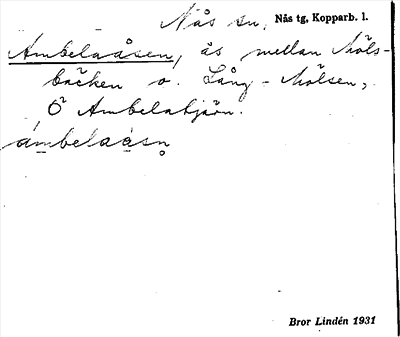 Nås sn. Nås tg, Kopparb. l.
Ambelaåsen, ås mellan Möls-
bäcken o. Lång-Mölsen,
Ö Ambelatjärn.
ámbelaàsn̥
Bror Lindén 1931